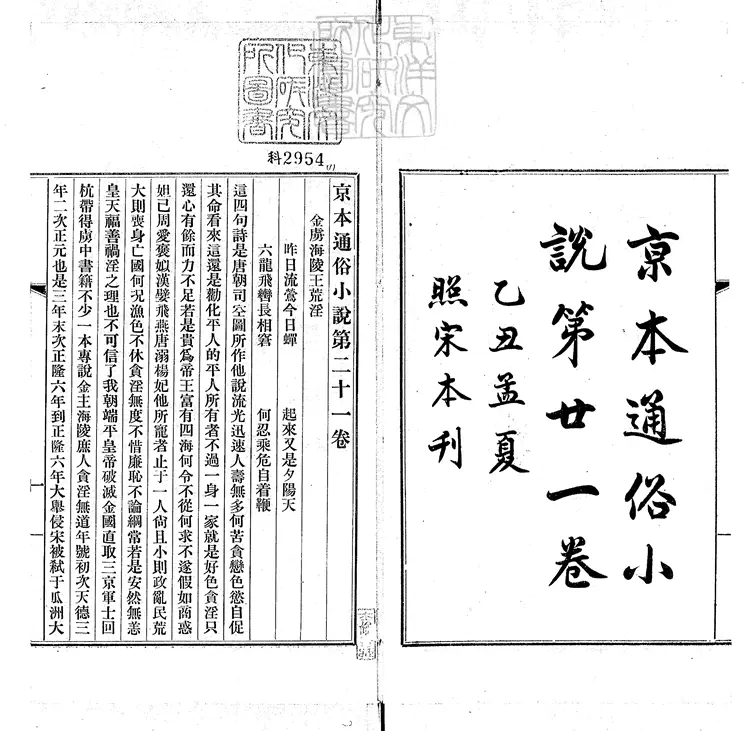 京本通俗小
說第廿一卷
乙丑孟夏
照宋本刊
東洋文
化研究
所圖書
科2954
京本通俗小說第二十一卷
金虜海陵王荒淫
昨日流鶯今日蟬　起來又是夕陽天
六龍飛轡長相窘　何忍乘危自着鞭
這四句詩是唐朝司空圖所作他說流光迅速人壽無多何苦貪戀色慾自促
其命看來這還是勸化平人的平人所有者不過一身一家就是好色貪淫只
還心有餘而力不足若是貴爲帝王富有四海何令不從何求不遂假如商惑
妲己周愛褒姒漢嬖飛燕唐溺楊妃他所寵者止于一人尚且小則政亂民荒
大則喪身亡國何况漁色不休貪淫無度不惜廉恥不論綱常若是安然無恙
皇天福善禍淫之理也不可信了我朝端平皇帝破滅金國直取三京軍士回
杭帶得虜中書籍不少一本專說金主海陵庶人貪淫無道年號初次天德三
年二次正元也是三年末次正隆六年到正隆六年大舉侵宋被弒于瓜洲大